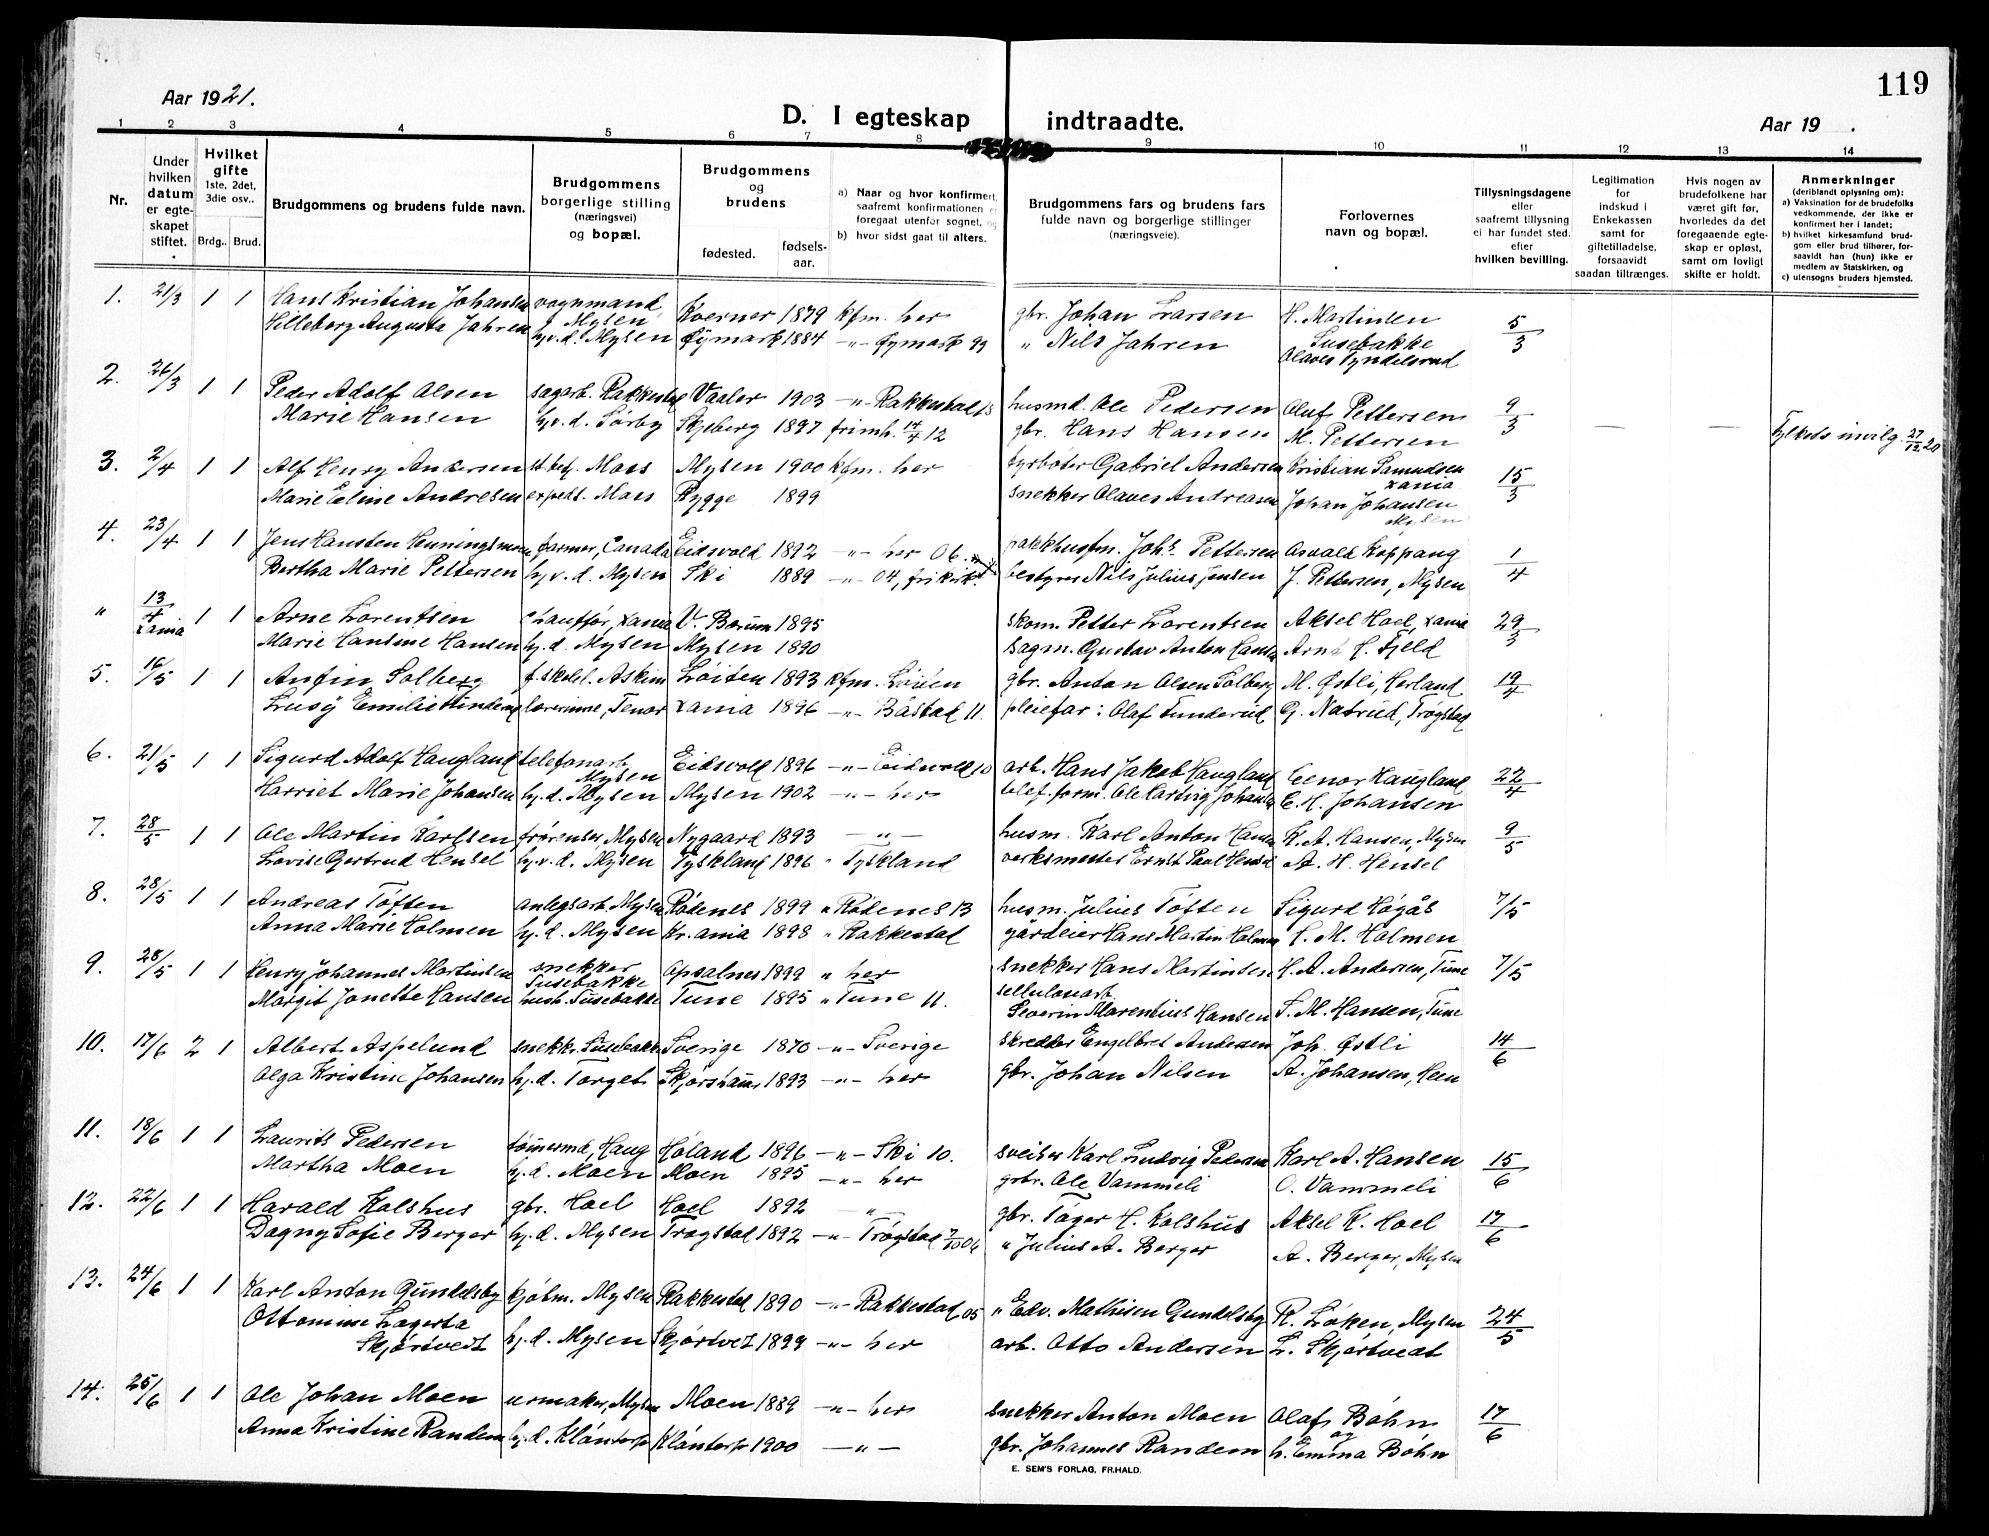 119
Aar 1921.
D. I egteskap indtraadte.
Aar 19 .
1 2 3 4 5 6 7 8 9 10 11 12 13 14
Nr.
Under hvilken datum er egteskapet stiftet.
Hvilket gifte 1ste, 2det, 3die osv..
Brdg.. Brud.
Brudgommens og brudens fulde navn.
Brudgommens borgerlige stilling (næringsvei) og bopæl.
Brudgommens og brudens
fødested. fødselsaar.
a) Naar og hvor konfirmert, saafremt konfirmationen er foregaat utenfor sognet, og
b) hvor sidst gaat til alters.
Brudgommens fars og brudens fars fulde navn og borgerlige stillinger (næringsveie).
Forlovernes navn og bopæl.
Tillysningsdagene eller saafremt tillysning ei har fundet sted, efter hvilken bevilling.
Legitimation for indskud i Enkekassen samt for giftetilladelse, forsaavidt saadan tiltrænges.
Hvis nogen av brudefolkene har været gift før, hvorledes da det foregaaende egteskap er opløst, samt om lovligt skifte er holdt.
Anmerkninger (deriblandt oplysning om):
a) Vaksination for de brudefolks vedkommende, der ikke er konfirmert her i landet;
b) hvilket kirkesamfund brudgom eller brud tilhører, forsaavidt han (hun) ikke er medlem av Statskirken, og
c) utensogns bruders hjemsted.
1. 21/3 1 1 Hans Kristian Johansen vognmand, Mysen Kverner 1879 kfm. her gbr. Johan Larsen H. Martinsen Susebakke 5/3
Hilleborg Augusta Jahren hv.d. Mysen Øymark 1884 -"- Øymark 99 " Nils Jahren Olaves Tyndelsrud
2. 26/3 1 1 Peder Adolf Olsen sagarb. Rakkestad Vaaler 1903 -"- Rakkestad 18 husmd. Ole Pedersen Oluf Pettersen 9/3 — —
Marie Hansen hv.d. Sørby Skjeberg 1897 frimh. 14/4 12 gbr. Hans Hansen M. Pettersen Fylkets invilg. 27/12 20
3. 2/4 1 1 Alf Henry Andersen st.bet. Moss Mysen 1900 kfm. her fyrbøter Gabriel Andersen Kristian Samuelsen xania 15/3
Marie Eline Andresen exped. Moss Rygge 1899 snekker Olaves Andreasen Johan Johansen Mysen
4. 23/4 1 1 Jens Hansten Henningsmoen farmer, Canada Eidsvold 1892 -"- her 06. pakkhusfm. Johs. Pettersen Osvald Koppang 1/4
Bertha Marie Pettersen hv.d. Mysen Ski 1889 -"- 04, frikirk. bestyrer Nils Julius Jensen J. Pettersen, Mysen
" 13/4 xania 1 1 Arne Lorentsen chauffør, xania V. Bærum 1895 skom. Petter Lorentsen Aksel Hoel, xania 29/3
Marie Hansine Hansen hj.d. Mysen Mysen 1890 sagm. Gustav Anton Hansen Arne H. Fjeld
5. 16/5 1 1 Anfin Solberg f.skoll. Askim Løiten 1893 kfm. Løiten gbr. Anton Olsen Solberg M. Østli, Herland 19/4
Lusy Emilie lærerinne, Tenor xania 1896 -"- Båstad 11. pleiefar: Olaf Tunderud G. Natrud, Trøgstad
6. 21/5 1 1 Sigurd Adolf Haugland telefonarb. Mysen Eidsvold 1896 -"- Eidsvold 10 arb. Hans Jakob Haugland Eenor Haugland 22/4
Harriet Marie Johansen hj.d. Mysen Mysen 1902 -"- her telef.form. Ole Hartvig Johansen E. H. Johansen
7. 28/5 1 1 Ole Martin Karlsen frørenser, Mysen Nygaard 1893 -"- husm. Karl Anton Hansen K. A. Hansen, Mysen 9/5
Lovise Gertrud Hensel hv.d. Mysen Tyskland 1896 " Tyskland verksmester Ernst Paul Hensel A. H. Hensel
8. 28/5 1 1 Andreas Tøften anlegsarb. Mysen Rødenes 1899 " Rødenes 13 husm. Julius Tøften Sigurd Høgås 7/5
Anna Marie Holmen hj.d. Mysen Kr.ania 1898 " Rakkestad gårdeier Hans Martin Holmen H. M. Holmen
9. 28/5 1 1 Henry Johannes Martinsen snekker Susebakke Opsalnes 1899 " her snekker Hans Martinsen H. A. Andersen, Tune 7/5
Margit Jonette Hansen hush. Susebakke Tune 1895 " Tune 11. sellulosearb. Severin Marentius Hansen S. M. Hansen, Tune
10. 17/6 2 1 Albert Aspelund snekkr. Susebakke Sverige 1870 -"- Sverige skredder Engelbret Andersen Joh. Østli 14/6
Olga Kristine Johansen hj.d. Torget Skjørsham. 1893 -"- her gbr. Johan Nilsen A. Johansen, Heen
11. 18/6 1 1 Laurits Pedersen tømermd, Haug Høland 1896 -"- Ski 10. sveiser Karl Ludvig Pedersen Karl A. Hansen 15/6
Martha Moen hj.d. Moen Moen 1895 -"- her grbr. Ole Vammeli O. Vammeli
12. 22/6 1 1 Harald Kolshus gbr. Hoel Hoel 1892 -"- gbr. Tøger H. Kolshus Aksel K. Hoel 17/6
Dagny Sofie Berger hj.d. Mysen Trøgstad 1892 -"- Trøgstad 7/10 06 " Julius A. Berger A. Berger, Mysen
13. 24/6 1 1 Karl Anton Gundelsby kjøbm. Mysen Rakkestad 1890 -"- Rakkestad 05 " Edv. Mathisen Gundelsby R. Løken, Mysen 24/5
Ottomine Lagerta Skjørtvedt hj.d. Mysen Skjørtvet 1899 -"- her arb. Otto Andersen L. Skjørtvedt
14. 25/6 1 1 Ole Johan Moen urmaker, Mysen Moen 1889 -"- her snekker Anton Moen Olaf Bøhn og 17/6
Anna Kristine Randem hj.d. Kløntorp Kløntorp 1900 -"- gbr. Johannes Randem h. Emma Bøhn
E. SEM'S FORLAG, FR.HALD.